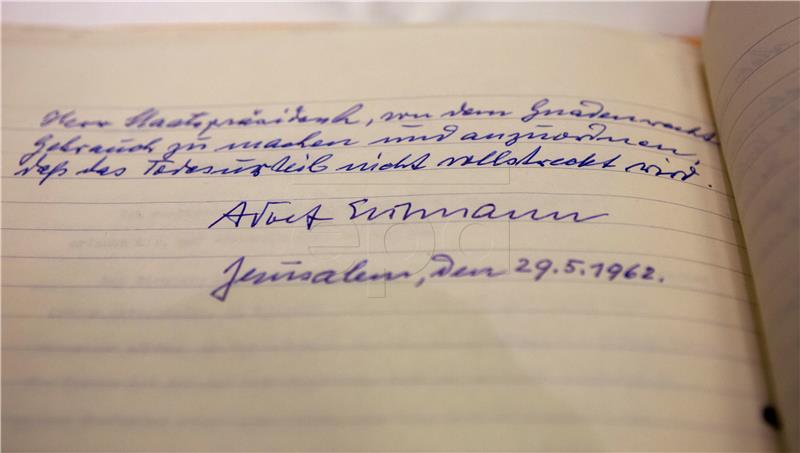 Herr Staatspräsident, von dem Gnadenrecht
Gebrauch zu machen und anzuordnen,
daß das Todesurteil nicht vollstreckt wird.
Adolf Eichmann
Jerusalem, den 29.5.1962.
epa